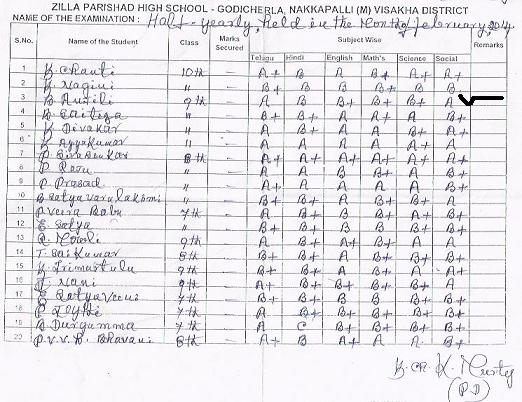 ZILLA PARISHAD HIGH SCHOOL - GODICHERLA, NAKKAPALLI (M) VISAKHA DISTRICT
NAME OF THE EXAMINATION : Half-yearly, held in the Month of february, 2014
S.No. Name of the Student Class Marks Secured Subject Wise Remarks
Telugu Hindi English Math's Science Social
1 K. Chanti 10th — A+ B B B+ A+ A+
2 K. Nagini " — B B B B+ B B
3 9th — A B B+ B+ B+ A
4 " — B+ B+ A A+ A B+
5 K. Divakar " — A B A A B+ A+
6 K. Ayyakumar " — A B A A B A
7 P. Sivasankar 8th — A+ A+ A+ A+ A+ A+
8 P. Raju " — A A B B+ A B+
9 P. Prasad " — A A A A A B+
10 B. Satyavaralakshmi " — B+ B+ A B+ B+ A
11 P. Veera Babu 7th — A A+ B B A+ B+
12 E. Satya " — B+ B+ B B B B+
13 9th — A B+ A+ B+ A A
14 T. Sai Kumar 8th — B+ B+ A B+ B+ A+
15 K. Trimurtulu 9th — B+ B+ A B+ A A+
16 9th — A+ B+ B+ B B A
17 7th — B+ B+ B B B B+
18 P. Jyothi 7th — A B+ B+ B+ A B+
19 B. Durgamma 7th — A C B+ B+ B+ B+
20 P.V.V.B. Bhavani 8th — A+ B A+ A A B+
K. Ch. K. Murty
(P.D)